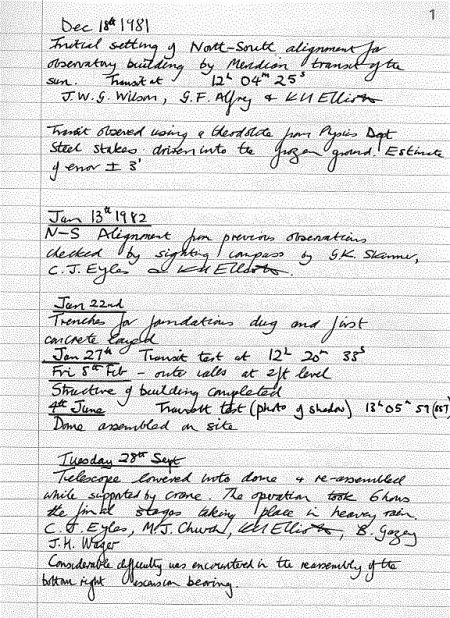 1
Dec 18th 1981
Initial setting of North-South alignment for
observatory building by Meridian transit of the
sun. Transit at 12h 04m 25s
J.W.G. Wilson, G.F. Alfrey & K H Elliott
Transit observed using a theodolite from Physics Dept
Steel stakes driven into the frozen ground! Estimate
of error ± 3'
Jan 13th 1982
N-S Alignment from previous observations
checked by sighting compass by G.K. Skinner,
C.J. Eyles & K H Elliott.
Jan 22nd
Trenches for foundations dug and first
concrete layed
Jan 27th Transit test at 12h 20m 38s
Fri 5th Feb - outer walls at 2ft level
Structure of building completed
4th June Transit test (photo of shadow) 13h 05m 57
Dome assembled on site
Tuesday 28th Sept
Telescope lowered into dome & re-assembled
while supported by crane. The operation took 6 hours
the final stages taking place in heavy rain.
C.J. Eyles, M.J. Church, K H Elliott, B. Gazey
J.H. Wager
Considerable difficulty was encountered in the reassembly of the
bottom right ascension bearing.